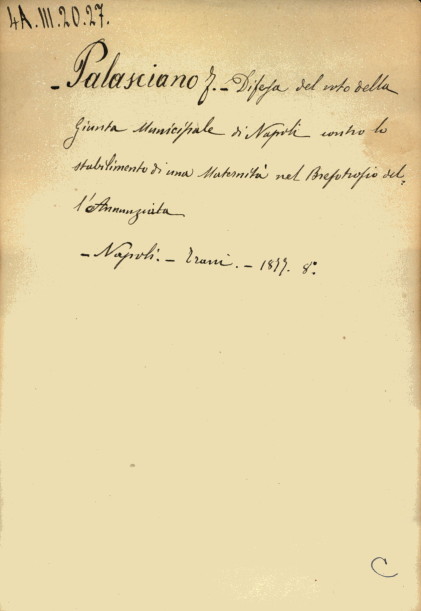 4A.III.20.27.
- Palasciano F. - Difesa del voto della
Giunta Municipale di Napoli contro lo
stabilimento di una Maternità nel Brefotrofio del-
l'Annunziata
- Napoli. - Trani. - 1877. 8.°
C